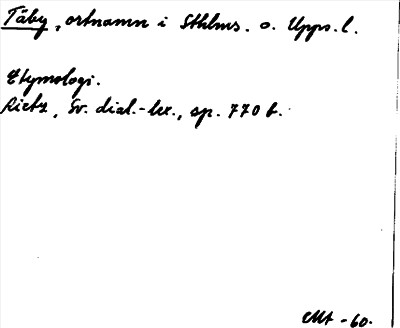 Täby, ortnamn i Sthlms. o. Upps. l.
Etymologi.
Rietz, Sv. dial.-lex., sp. 770 b.
CMt -60.